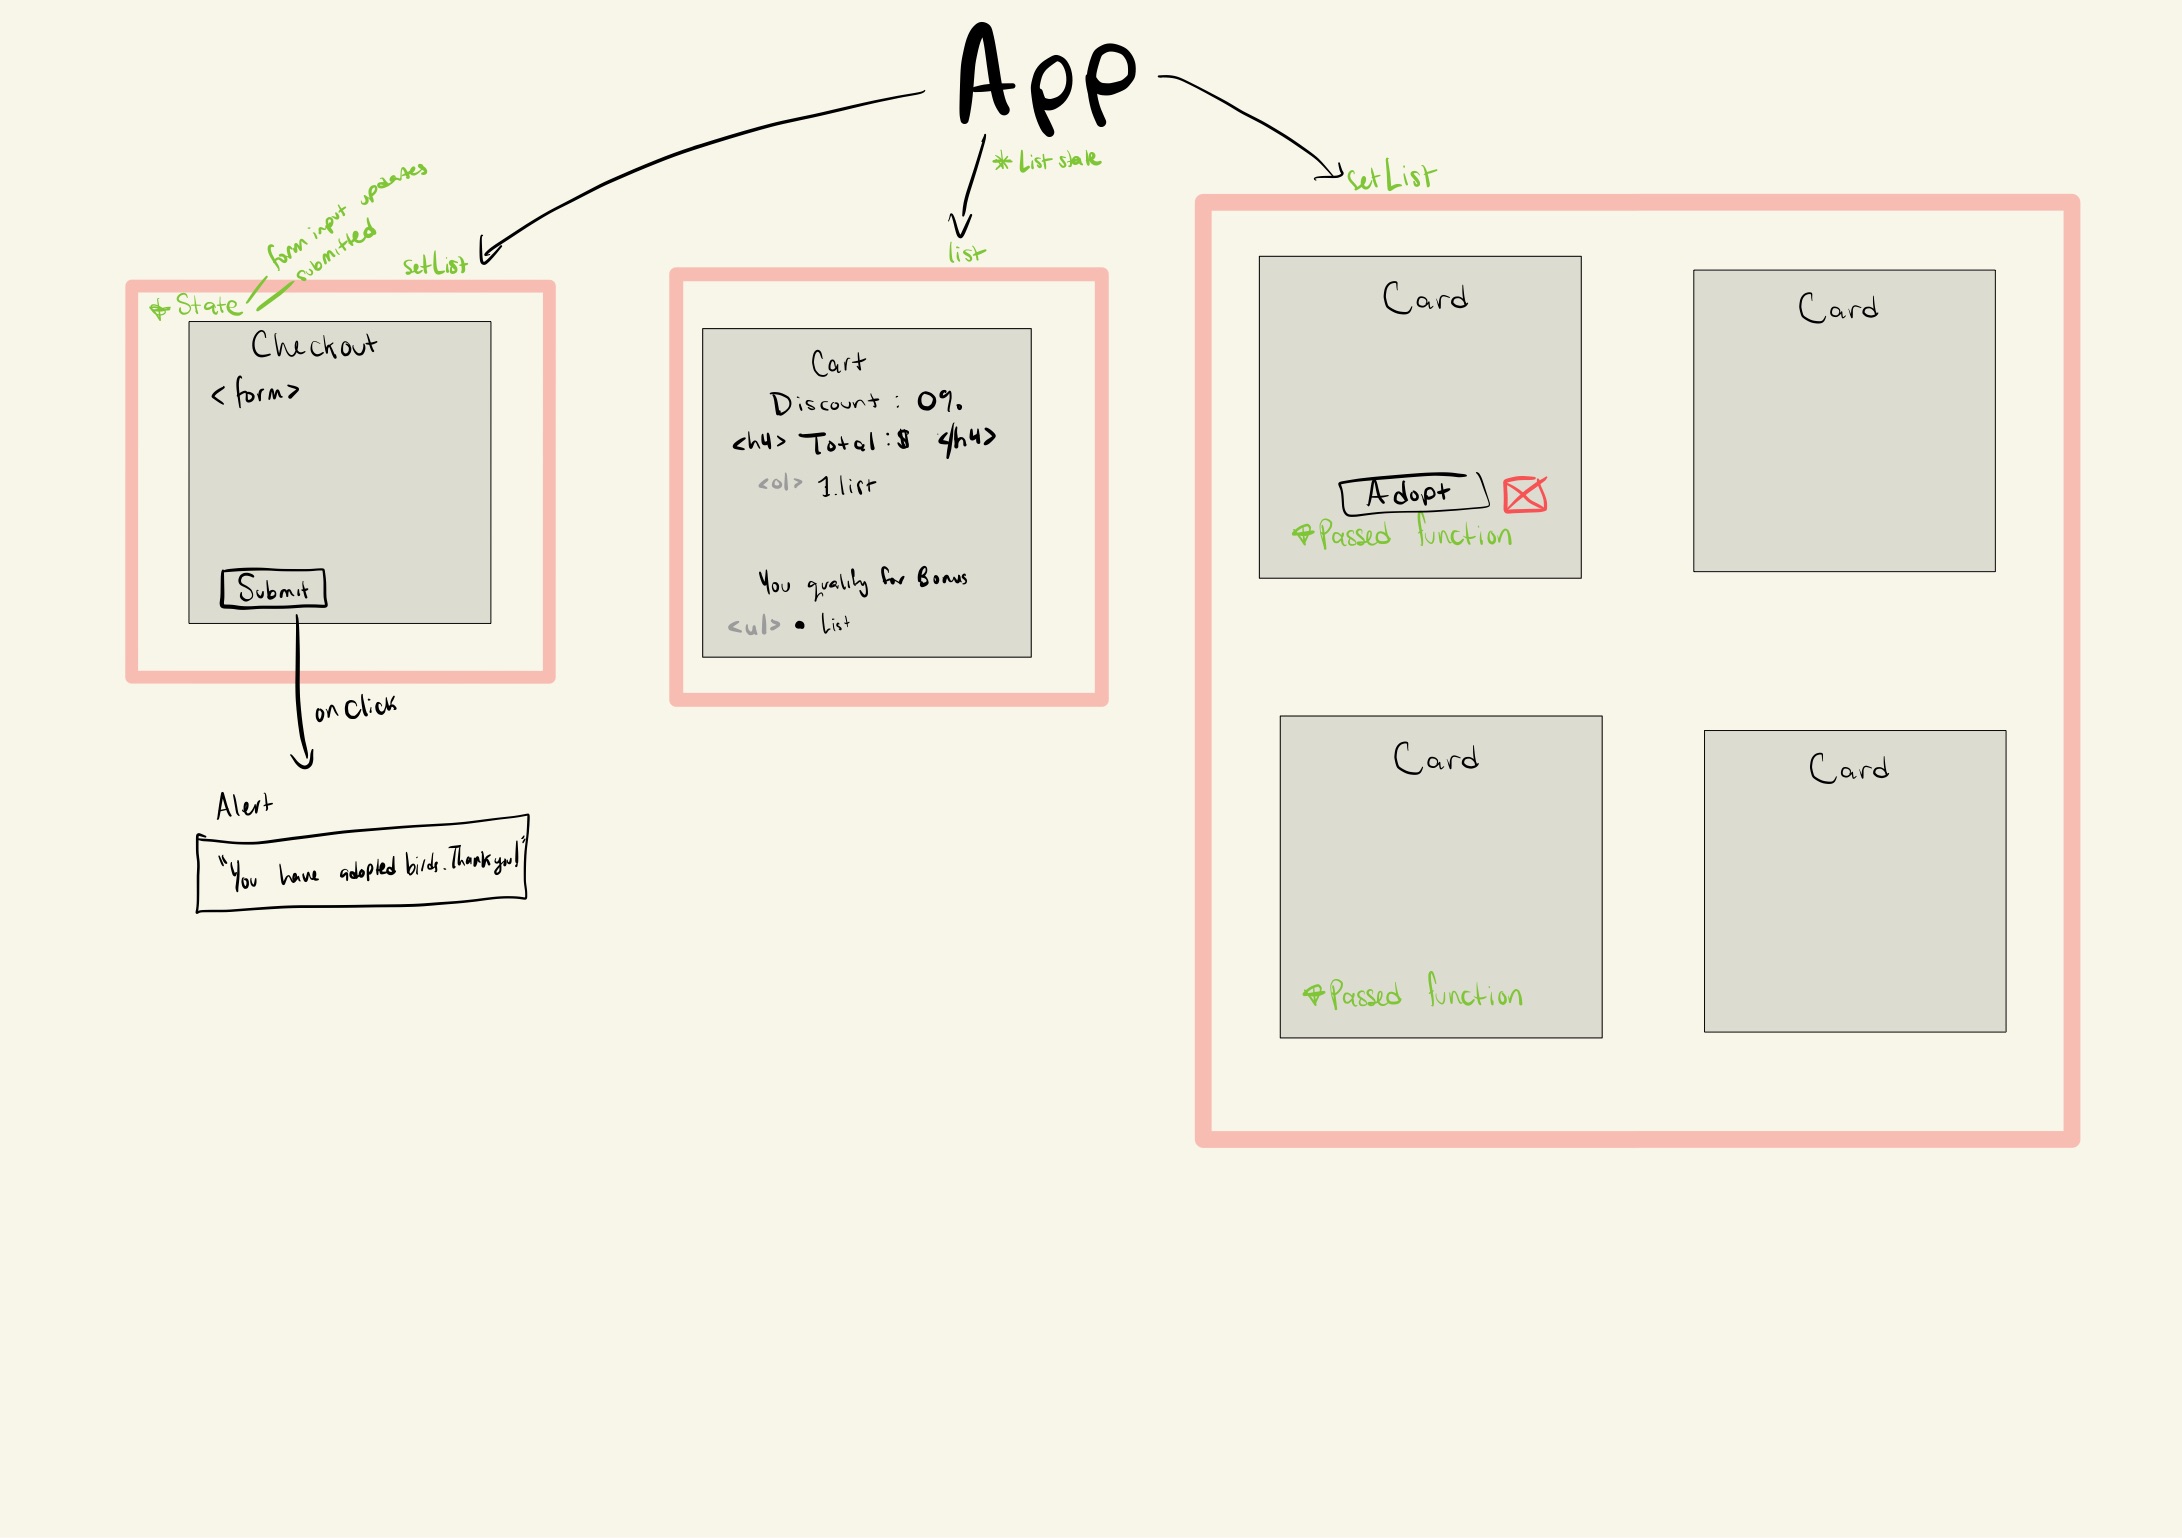 App
* List state
setList
list
form input updates
submitted
setList
* State
Checkout
<form>
Submit
onClick
Alert
"You have adopted birds. Thank you!"
Cart
Discount : 0%.
<h4> Total : $ </h4>
<ol> 1. list
You qualify for Bonus
<ul> • List
Card
Adopt
Passed function
Card
Card
Passed function
Card